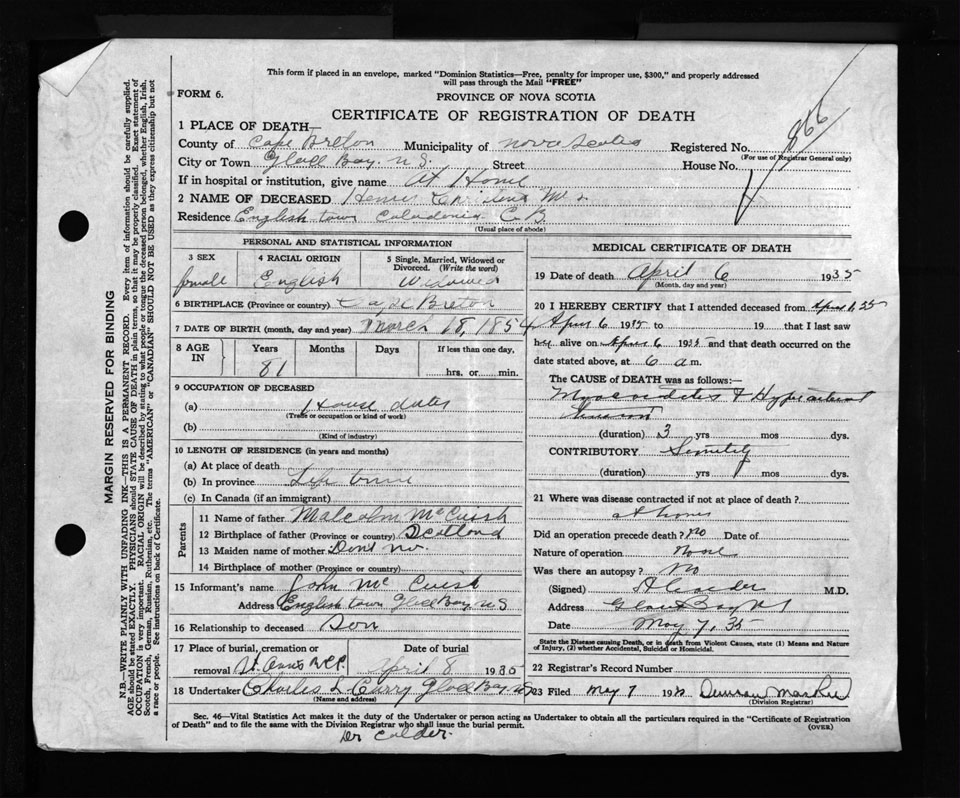 This form if placed in an envelope, marked "Dominion Statistics—Free, penalty for improper use, $300," and properly addressed
will pass through the Mail "FREE"
FORM 6.
PROVINCE OF NOVA SCOTIA
CERTIFICATE OF REGISTRATION OF DEATH
866
1 PLACE OF DEATH—
County of Cape Breton Municipality of Nova Scotia Registered No.
(For use of Registrar General only)
City or Town Glace Bay. N S. Street House No.
If in hospital or institution, give name At Home
2 NAME OF DECEASED
Residence English town Caledonia C B
(Usual place of abode)
PERSONAL AND STATISTICAL INFORMATION
3 SEX 4 RACIAL ORIGIN 5 Single, Married, Widowed or Divorced. (Write the word)
female English Widowed
6 BIRTHPLACE (Province or country) Cape Breton
7 DATE OF BIRTH (month, day and year) March 18, 1854
8 AGE IN Years Months Days If less than one day,
81 hrs. or min.
9 OCCUPATION OF DECEASED
(a) House duties
(Trade or occupation or kind of work)
(b)
(Kind of industry)
10 LENGTH OF RESIDENCE (in years and months)
(a) At place of death
(b) In province Life time
(c) In Canada (if an immigrant)
Parents
11 Name of father Malcolm McCuish
12 Birthplace of father (Province or country) Scotland
13 Maiden name of mother Dont no.
14 Birthplace of mother (Province or country)
15 Informant's name John Mc Cuish
Address English town Glace Bay N S
16 Relationship to deceased Son
17 Place of burial, cremation or removal St. Anns Date of burial April 8 1935
18 Undertaker Charles L Curry Glace Bay N S
(Name and address)
MEDICAL CERTIFICATE OF DEATH
19 Date of death April 6 1935
(Month, day and year)
20 I HEREBY CERTIFY that I attended deceased from April 6, 35
April 6 1935 to 19 that I last saw
her alive on April 6 1935 and that death occurred on the
date stated above, at 6 a m.
The CAUSE of DEATH was as follows:—
Myocarditis &
(duration) 3 yrs mos dys.
CONTRIBUTORY Senility
(duration) yrs mos dys.
21 Where was disease contracted if not at place of death?
at home
Did an operation precede death? No Date of
Nature of operation None
Was there an autopsy? No
(Signed) A Calder M.D.
Address Glace Bay NS
Date May 7, 35
State the Disease causing Death, or in death from Violent Causes, state (1) Means and Nature
of Injury, (2) whether Accidental, Suicidal or Homicidal.
22 Registrar's Record Number
23 Filed May 7 19 Duncan
(Division Registrar)
Sec. 46—Vital Statistics Act makes it the duty of the Undertaker or person acting as Undertaker to obtain all the particulars required in the "Certificate of Registration
of Death" and to file the same with the Division Registrar who shall issue the burial permit. (OVER)
Dr Calder.
MARGIN RESERVED FOR BINDING
N.B.—WRITE PLAINLY WITH UNFADING INK—THIS IS A PERMANENT RECORD. Every item of information should be carefully supplied.
AGE should be stated EXACTLY. PHYSICIANS should STATE CAUSE OF DEATH in plain terms, so that it may be properly classified. Exact statement of
OCCUPATION is very important. RACIAL ORIGIN will be described by stating to what people or tongue the deceased person belonged, whether English, Irish,
Scotch, French, German, Russian, Ruthenian, etc. The terms "AMERICAN" or "CANADIAN" SHOULD NOT BE USED as they express citizenship but not
a race or people. See instructions on back of Certificate.